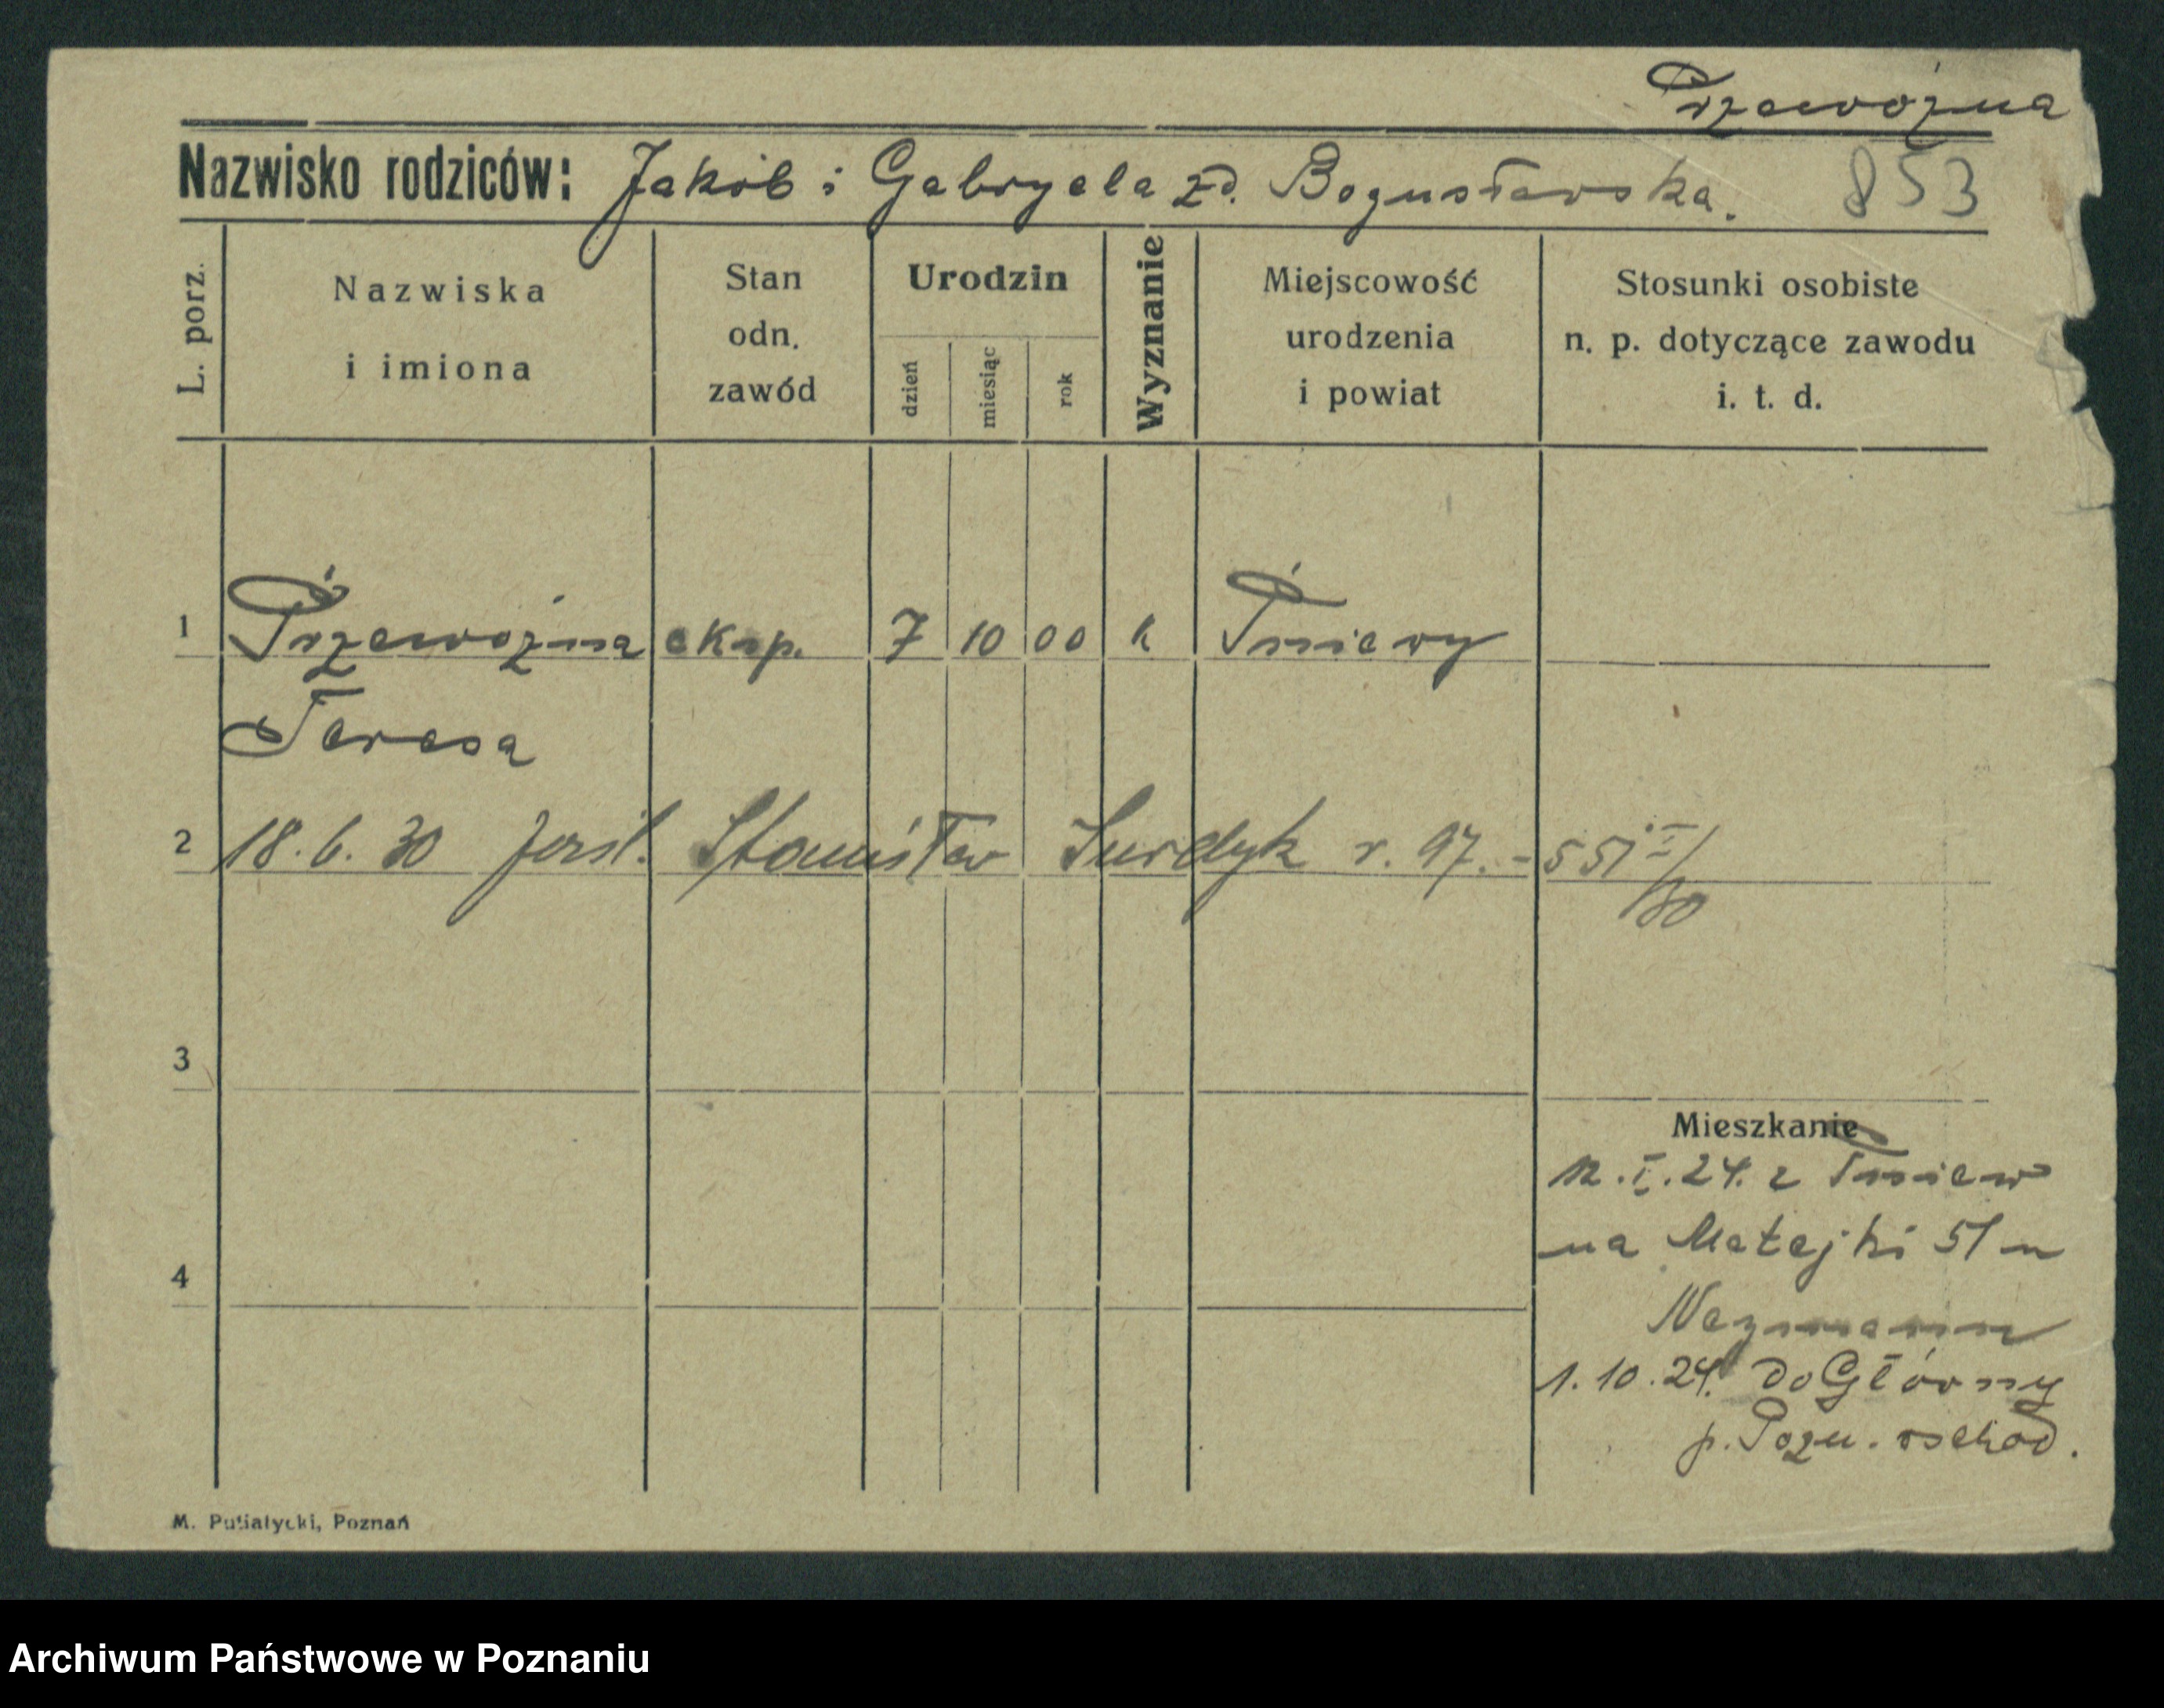 Przewoźna
Nazwisko rodziców: Jakób i Gabryela zd. Bogusławska. 853
L. porz.
Nazwiska i imiona
Stan odn. zawód
Urodzin
dzień
miesiąc
rok
Wyznanie
Miejscowość urodzenia i powiat
Stosunki osobiste n. p. dotyczące zawodu i. t. d.
1 Przewoźna eksp. 7 10 00 k Pniewy
Teresa
2 18.6.30 Stanisław Surdyk r. 97. - 551 II/30
3
Mieszkanie
12.I.24. z Pniew
na Matejki 51 u
4
1.10.24. do Główny
p. Pozn. wschod.
M. Putiatycki, Poznań
Archiwum Państwowe w Poznaniu